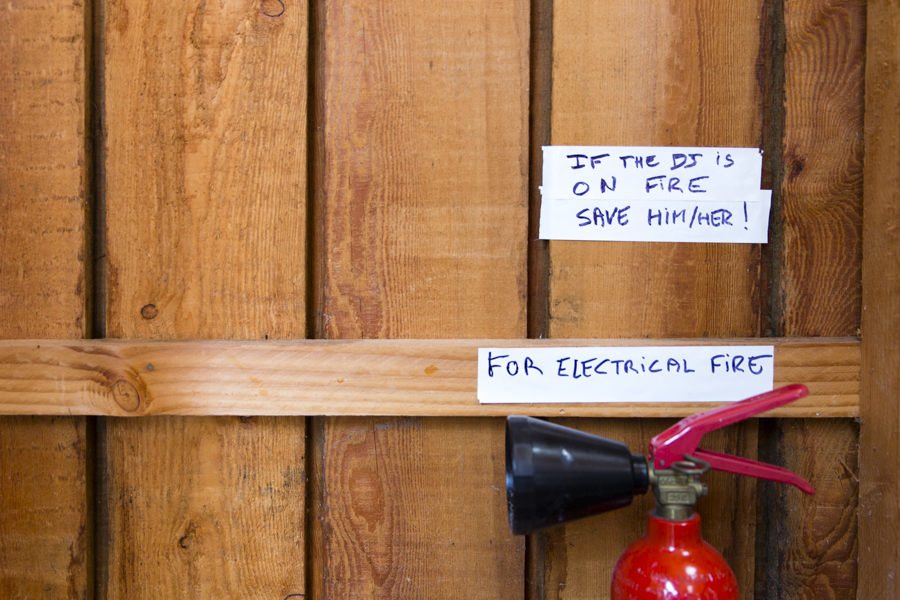 IF THE DJ iS
ON FiRE
SAVE HiM/HER!
FOR ELECTRiCAL FiRE